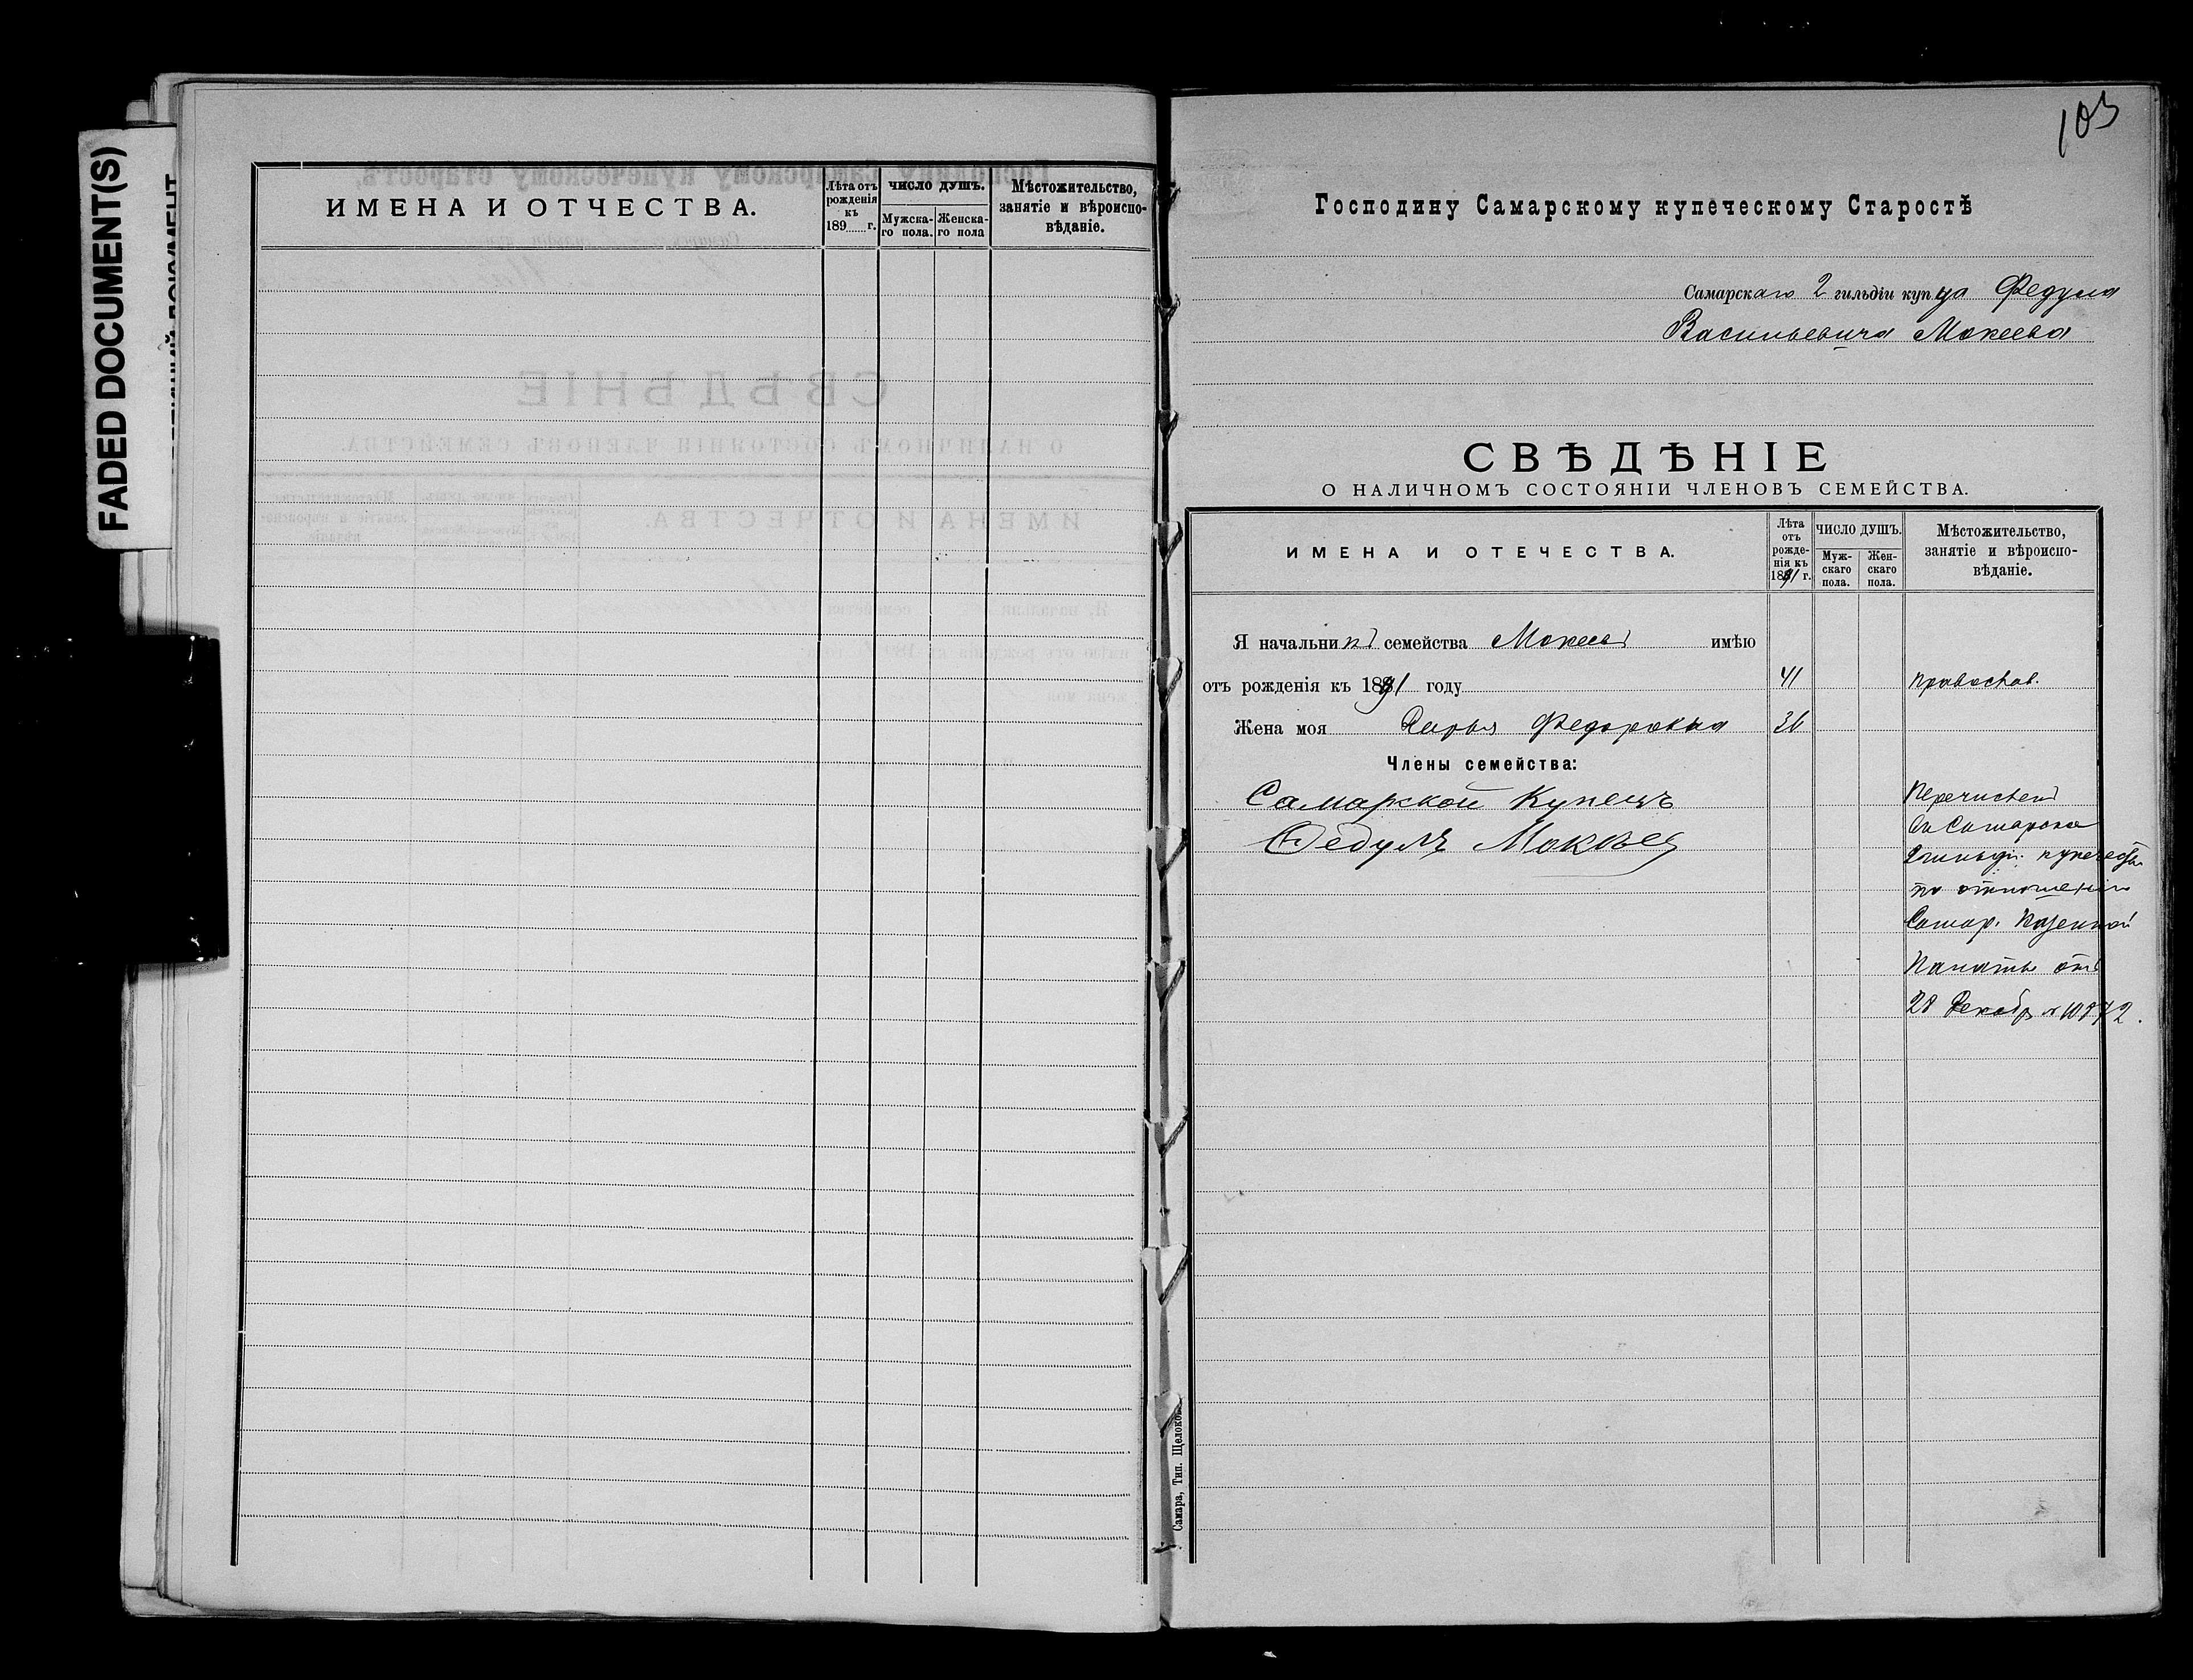 FADED DOCUMENT(S)
ИМЕНА И ОТЧЕСТВА.
Лѣта отъ рожденія къ 189 г.
ЧИСЛО ДУШЪ.
Мужска-го пола.
Женска-го пола
Мѣстожительство, занятіе и вѣроиспо-вѣданіе.
103
Господину Самарскому купеческому Старостѣ
Самарскаго 2 гильдіи купца Федула
Васильевича Мокеева
СВѢДѢНІЕ
О НАЛИЧНОМЪ СОСТОЯНІИ ЧЛЕНОВЪ СЕМЕЙСТВА.
ИМЕНА И ОТЕЧЕСТВА.
Лѣта отъ рожде-нія къ 1891 г.
ЧИСЛО ДУШЪ.
Муж-скаго пола.
Жен-скаго пола.
Мѣстожительство, занятіе и вѣроиспо-вѣданіе.
Я начальникъ семейства Мокеевъ имѣю
отъ рожденія къ 1891 году 41 православ.
Жена моя Дарья Федоровна 36
Члены семейства:
Самарской Купецъ
Федулъ Мокѣев
Перечисленъ
въ Самарское
2 гильд. купечество
по отношенію
Самар. Казенной
Палаты отъ
28 Декабр №
Самара, Тип. Щелокова